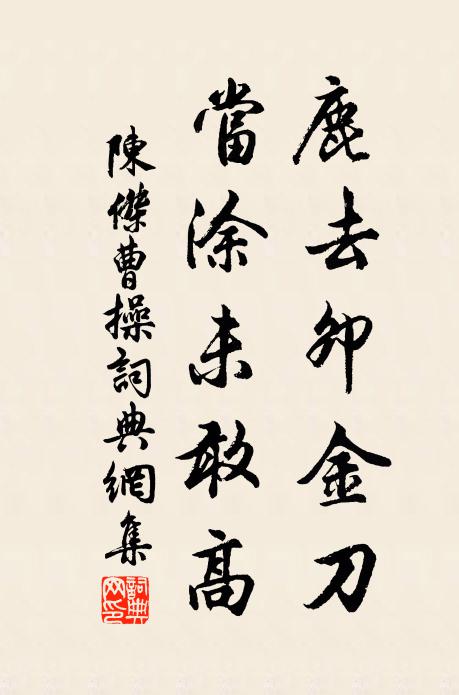 鹿去卯金刀
當涂未敢高
陳傑曹操詞典網集
詞典网印